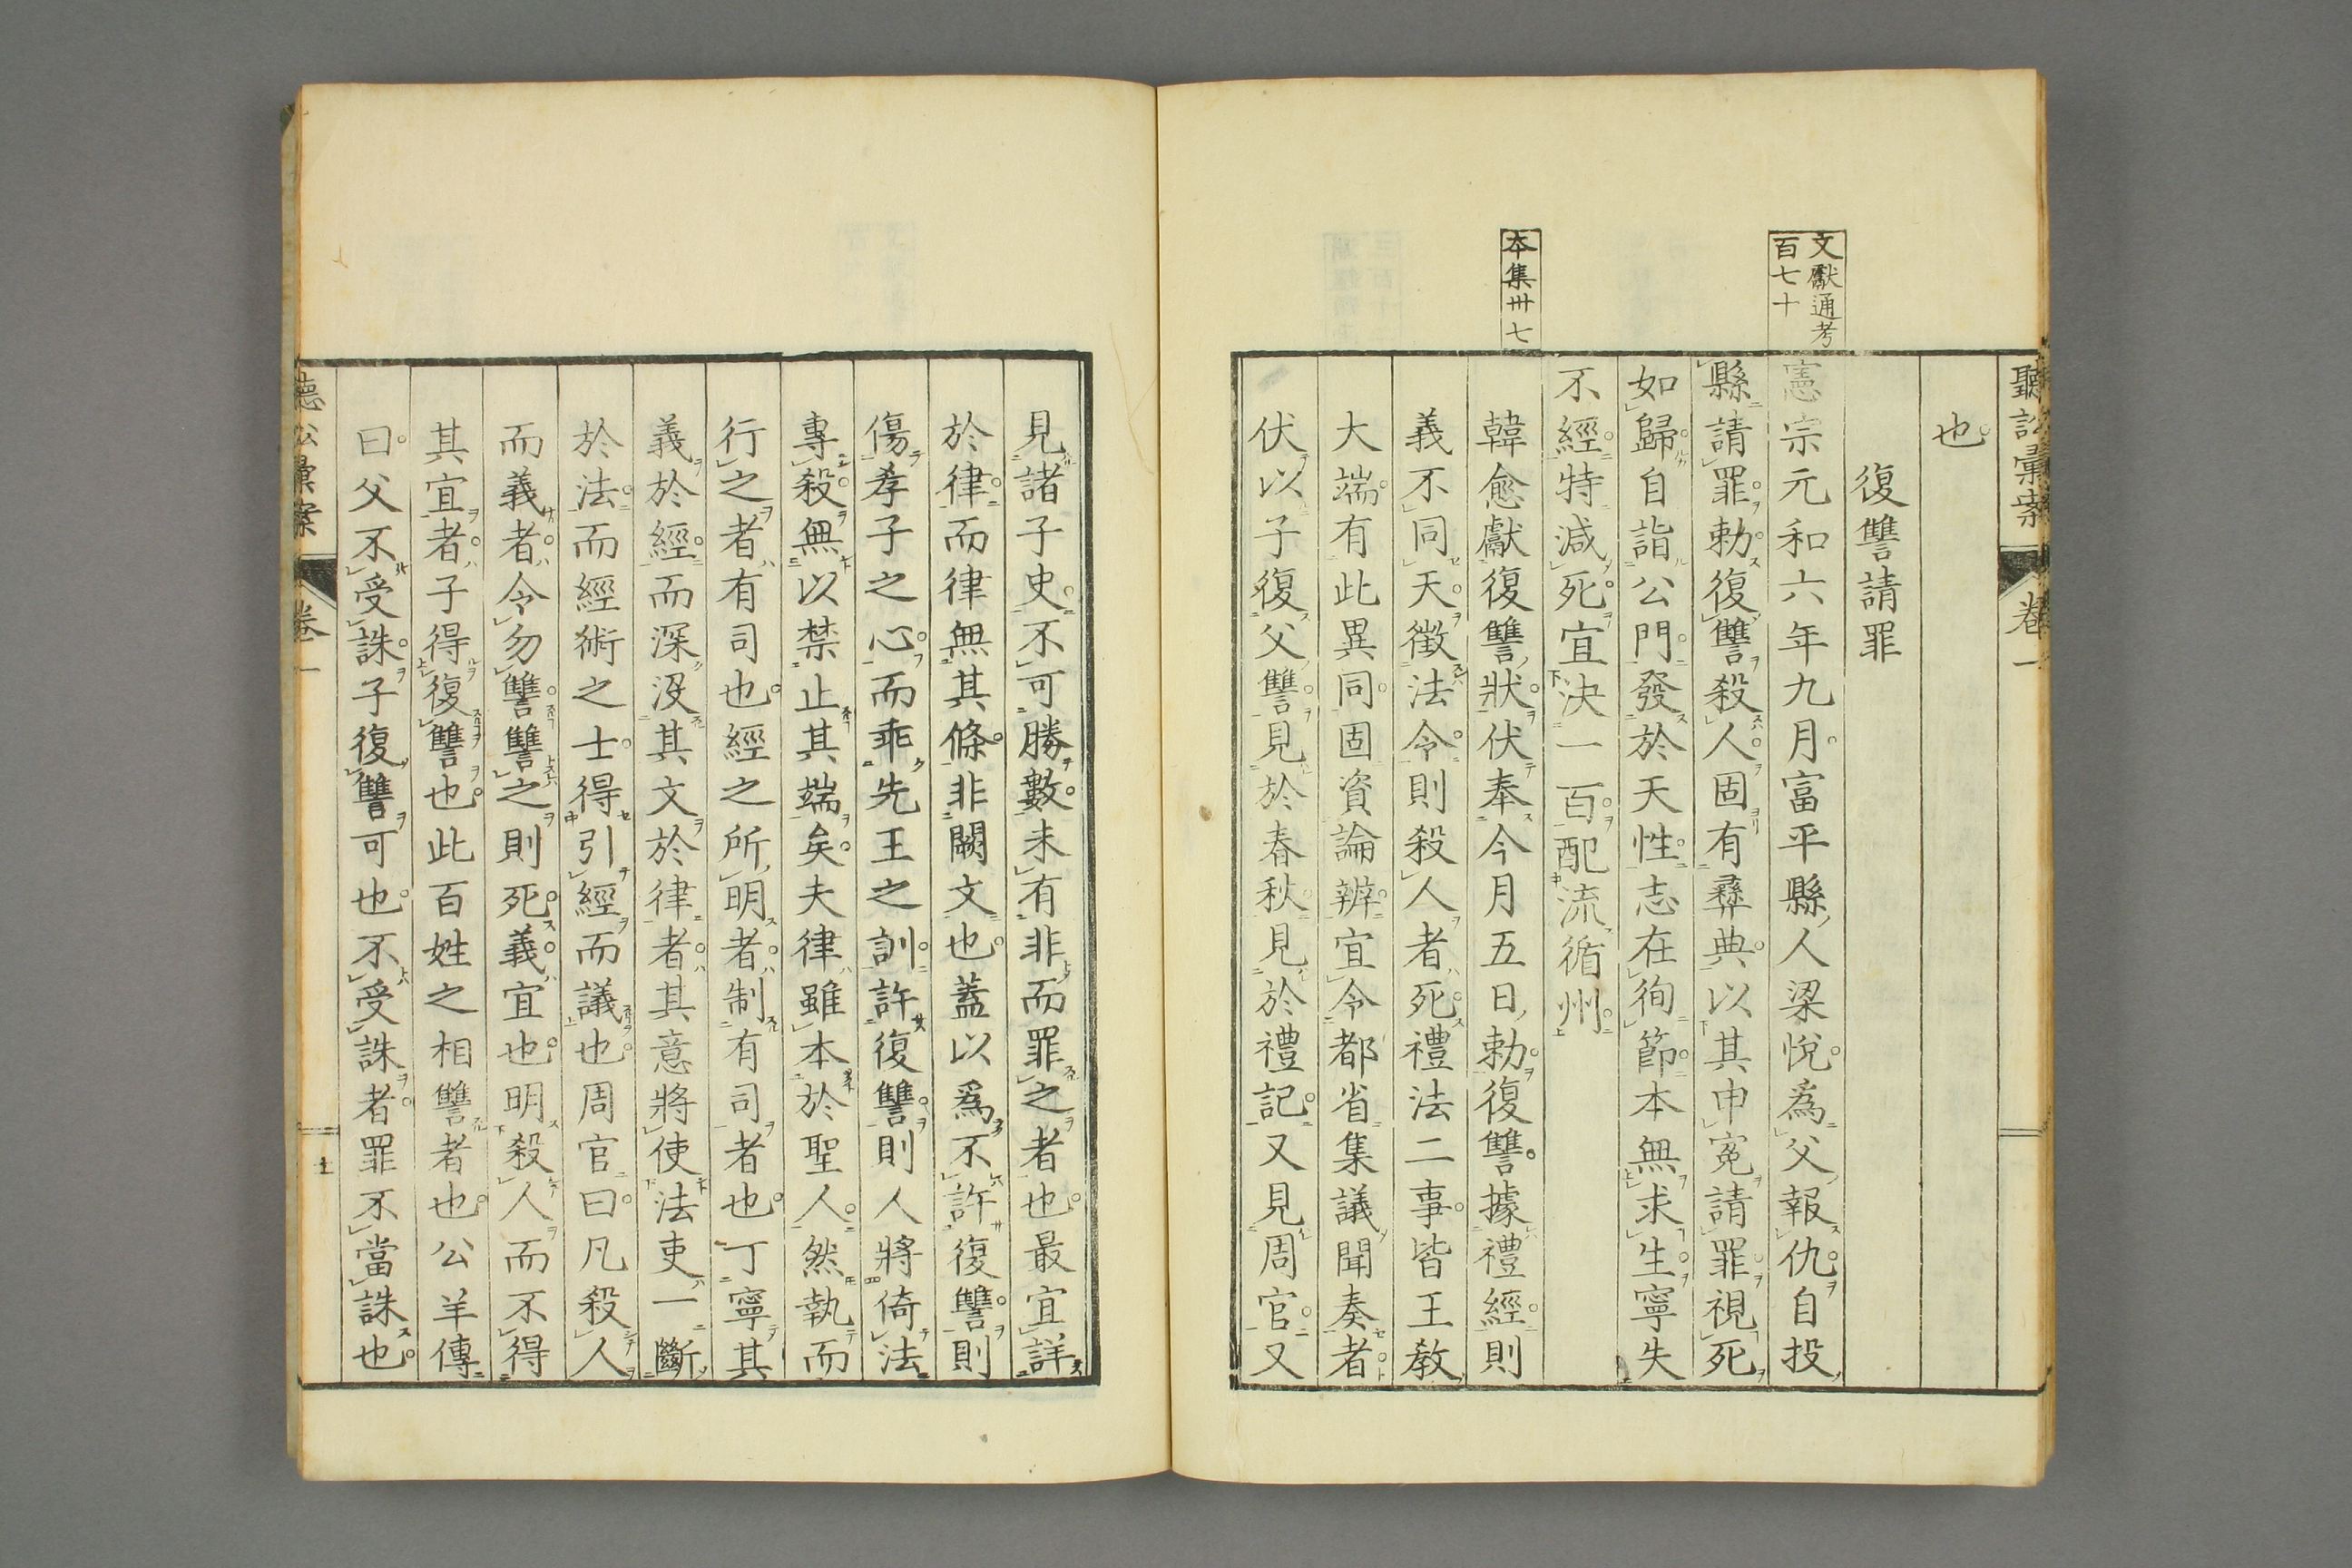 聽訟彙案 卷一
也
復讐請罪
文獻通考
百七十
憲宗元和六年九月富平縣人梁悅爲父報仇自投
縣請罪勅復讐殺人固有彝典以其申寃請罪視死
如歸自詣公門發於天性志在徇節本無求生寧失
不經特減死宜決一百配流循州
本集卅七
韓愈獻復讐狀伏奉今月五日勅復讐據禮經則
義不同天徵法令則殺人者死禮法二事皆王敎
大端有此異同固資論辨宜令都省集議聞奏者
伏以子復父讐見於春秋見於禮記又見周官又
見諸子史不可勝數未有非而罪之者也最宜詳
於律而律無其條非闕文也蓋以爲不許復讐則
傷孝子之心而乖先王之訓許復讐則人將倚法
專殺無以禁止其端矣夫律雖本於聖人然執而
行之者有司也經之所明者制有司者也丁寧其
義於經而深沒其文於律者其意將使法吏一斷
於法而經術之士得引經而議也周官曰凡殺人
而義者令勿讐讐之則死義宜也明殺人而不得
其宜者子得復讐也此百姓之相讐者也公羊傳
曰父不受誅子復讐可也不受誅者罪不當誅也
聽訟彙案 卷一